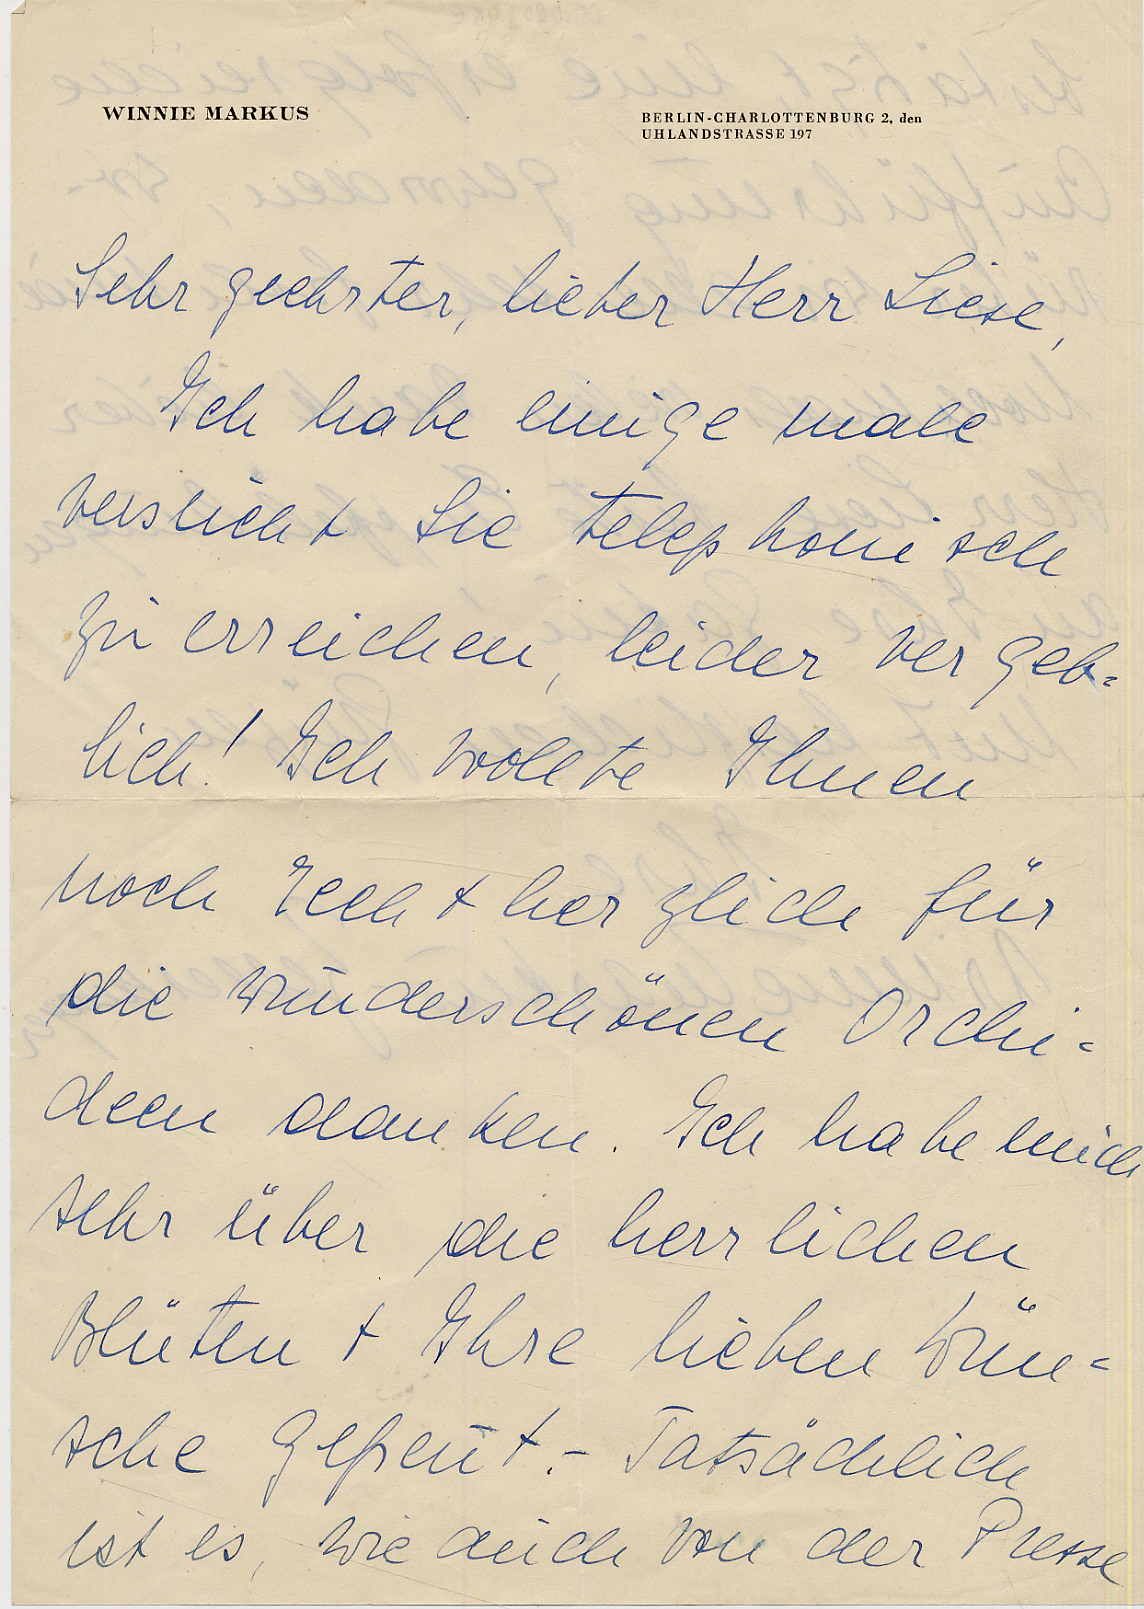 WINNIE MARKUS
BERLIN-CHARLOTTENBURG 2, den
UHLANDSTRASSE 197
Sehr geehrter, lieber Herr Liese,
Ich habe einige male
versucht Sie telephonisch
zu erreichen, leider vergeb-
lich! Ich wollte Ihnen
noch recht herzlich für
die wunderschönen Orchi-
deen danken. Ich habe mich
sehr über die herrlichen
Blüten + Ihre lieben Wün-
sche gefreut. – Tatsächlich
ist es, wie auch von der Presse